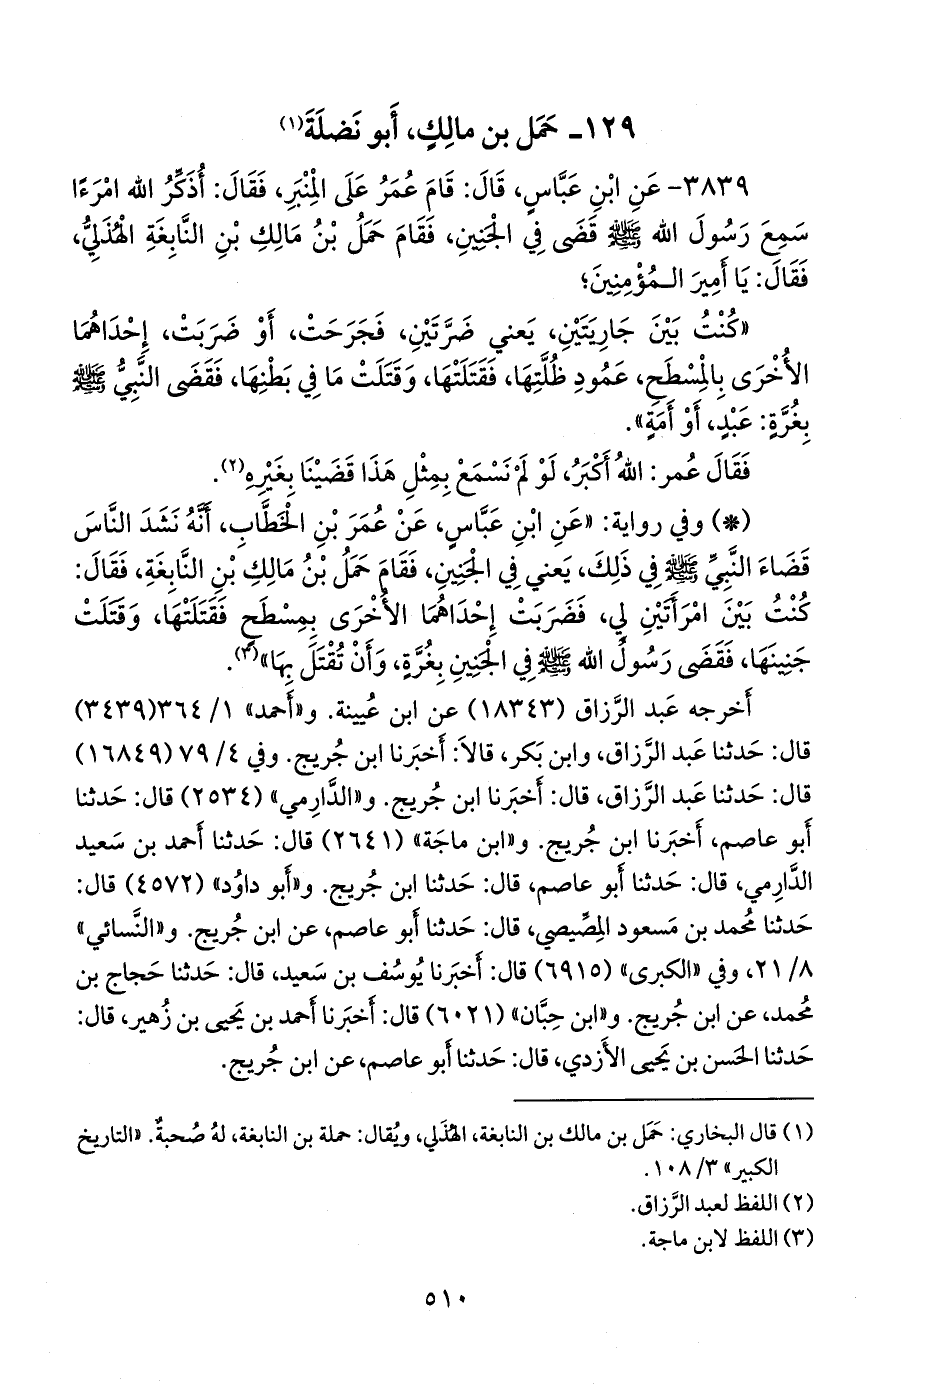 ١٢٩- حَمَل بن مالِكٍ، أَبو نَضلَةَ(١)
٣٨٣٩- عَنِ ابْنِ عَبَّاسٍ، قَالَ: قَامَ عُمَرُ عَلَى الْمِنْبَرِ، فَقَالَ: أُذَكِّرُ الله امْرَءًا
سَمِعَ رَسُولَ الله ﷺ قَضَى فِي الْجَنِينِ، فَقَامَ حَمَلُ بْنُ مَالِكِ بْنِ النَّابِغَةِ الْهُذَلِيُّ،
فَقَالَ: يَا أَمِيرَ الـمُؤْمِنِينَ؛
«كُنْتُ بَيْنَ جَارِيَتَيْنِ، يَعني ضَرَّتَيْنِ، فَجَرَحَتْ، أَوْ ضَرَبَتْ، إِحْدَاهُمَا
الأُخْرَى بِالْمِسْطَحِ، عَمُودِ ظُلَّتِهَا، فَقَتَلَتْهَا، وَقَتَلَتْ مَا فِي بَطْنِهَا، فَقَضَى النَّبِيُّ ﷺ
بِغُرَّةٍ: عَبْدٍ، أَوْ أَمَةٍ».
فَقَالَ عُمر: اللهُ أَكْبَرُ، لَوْ لَمْ نَسْمَعْ بِمِثْلِ هَذَا قَضَيْنَا بِغَيْرِهِ(٢).
(*) وفي رواية: «عَنِ ابْنِ عَبَّاسٍ، عَنْ عُمَرَ بْنِ الْخَطَّابِ، أَنَّهُ نَشَدَ النَّاسَ
قَضَاءَ النَّبِيِّ ﷺ فِي ذَلِكَ، يَعني فِي الْجَنِينِ، فَقَامَ حَمَلُ بْنُ مَالِكِ بْنِ النَّابِغَةِ، فَقَالَ:
كُنْتُ بَيْنَ امْرَأَتَيْنِ لِي، فَضَرَبَتْ إِحْدَاهُمَا الأُخْرَى بِمِسْطَحٍ فَقَتَلَتْهَا، وَقَتَلَتْ
جَنِينَهَا، فَقَضَى رَسُولُ الله ﷺ فِي الْجَنِينِ بِغُرَّةٍ، وَأَنْ تُقْتَلَ بِهَا»(٣).
أَخرجه عَبد الرَّزاق (١٨٣٤٣) عن ابن عُيينة. و«أَحمد» ١/ ٣٦٤(٣٤٣٩)
قال: حَدثنا عَبد الرَّزاق، وابن بَكر، قالاَ: أَخبَرنا ابن جُريج. وفي ٤/ ٧٩ (١٦٨٤٩)
قال: حَدثنا عَبد الرَّزاق، قال: أَخبَرنا ابن جُريج. و«الدَّارمي» (٢٥٣٤) قال: حَدثنا
أَبو عاصم، أَخبَرنا ابن جُريج. و«ابن ماجَة» (٢٦٤١) قال: حَدثنا أَحمد بن سَعيد
الدَّارِمي، قال: حَدثنا أَبو عاصم، قال: حَدثنا ابن جُريج. و«أَبو داوُد» (٤٥٧٢) قال:
حَدثنا مُحمد بن مَسعود المِصِّيصي، قال: حَدثنا أَبو عاصم، عن ابن جُريج. و«النَّسائي»
٨/ ٢١، وفي «الكبرى» (٦٩١٥) قال: أَخبَرنا يُوسُف بن سَعيد، قال: حَدثنا حَجاج بن
مُحمد، عن ابن جُريج. و«ابن حِبَّان» (٦٠٢١) قال: أَخبَرنا أَحمد بن يَحيى بن زُهير، قال:
حَدثنا الحَسن بن يَحيى الأَزدي، قال: حَدثنا أَبو عاصم، عن ابن جُريج.
(١) قال البخاري: حَمَل بن مالك بن النابغة، الهُذَلي، ويُقال: حملة بن النابغة، لهُ صُحبةٌ. «التاريخ
الكبير» ٣/ ١٠٨.
(٢) اللفظ لعبد الرَّزاق.
(٣) اللفظ لابن ماجة.
٥١٠